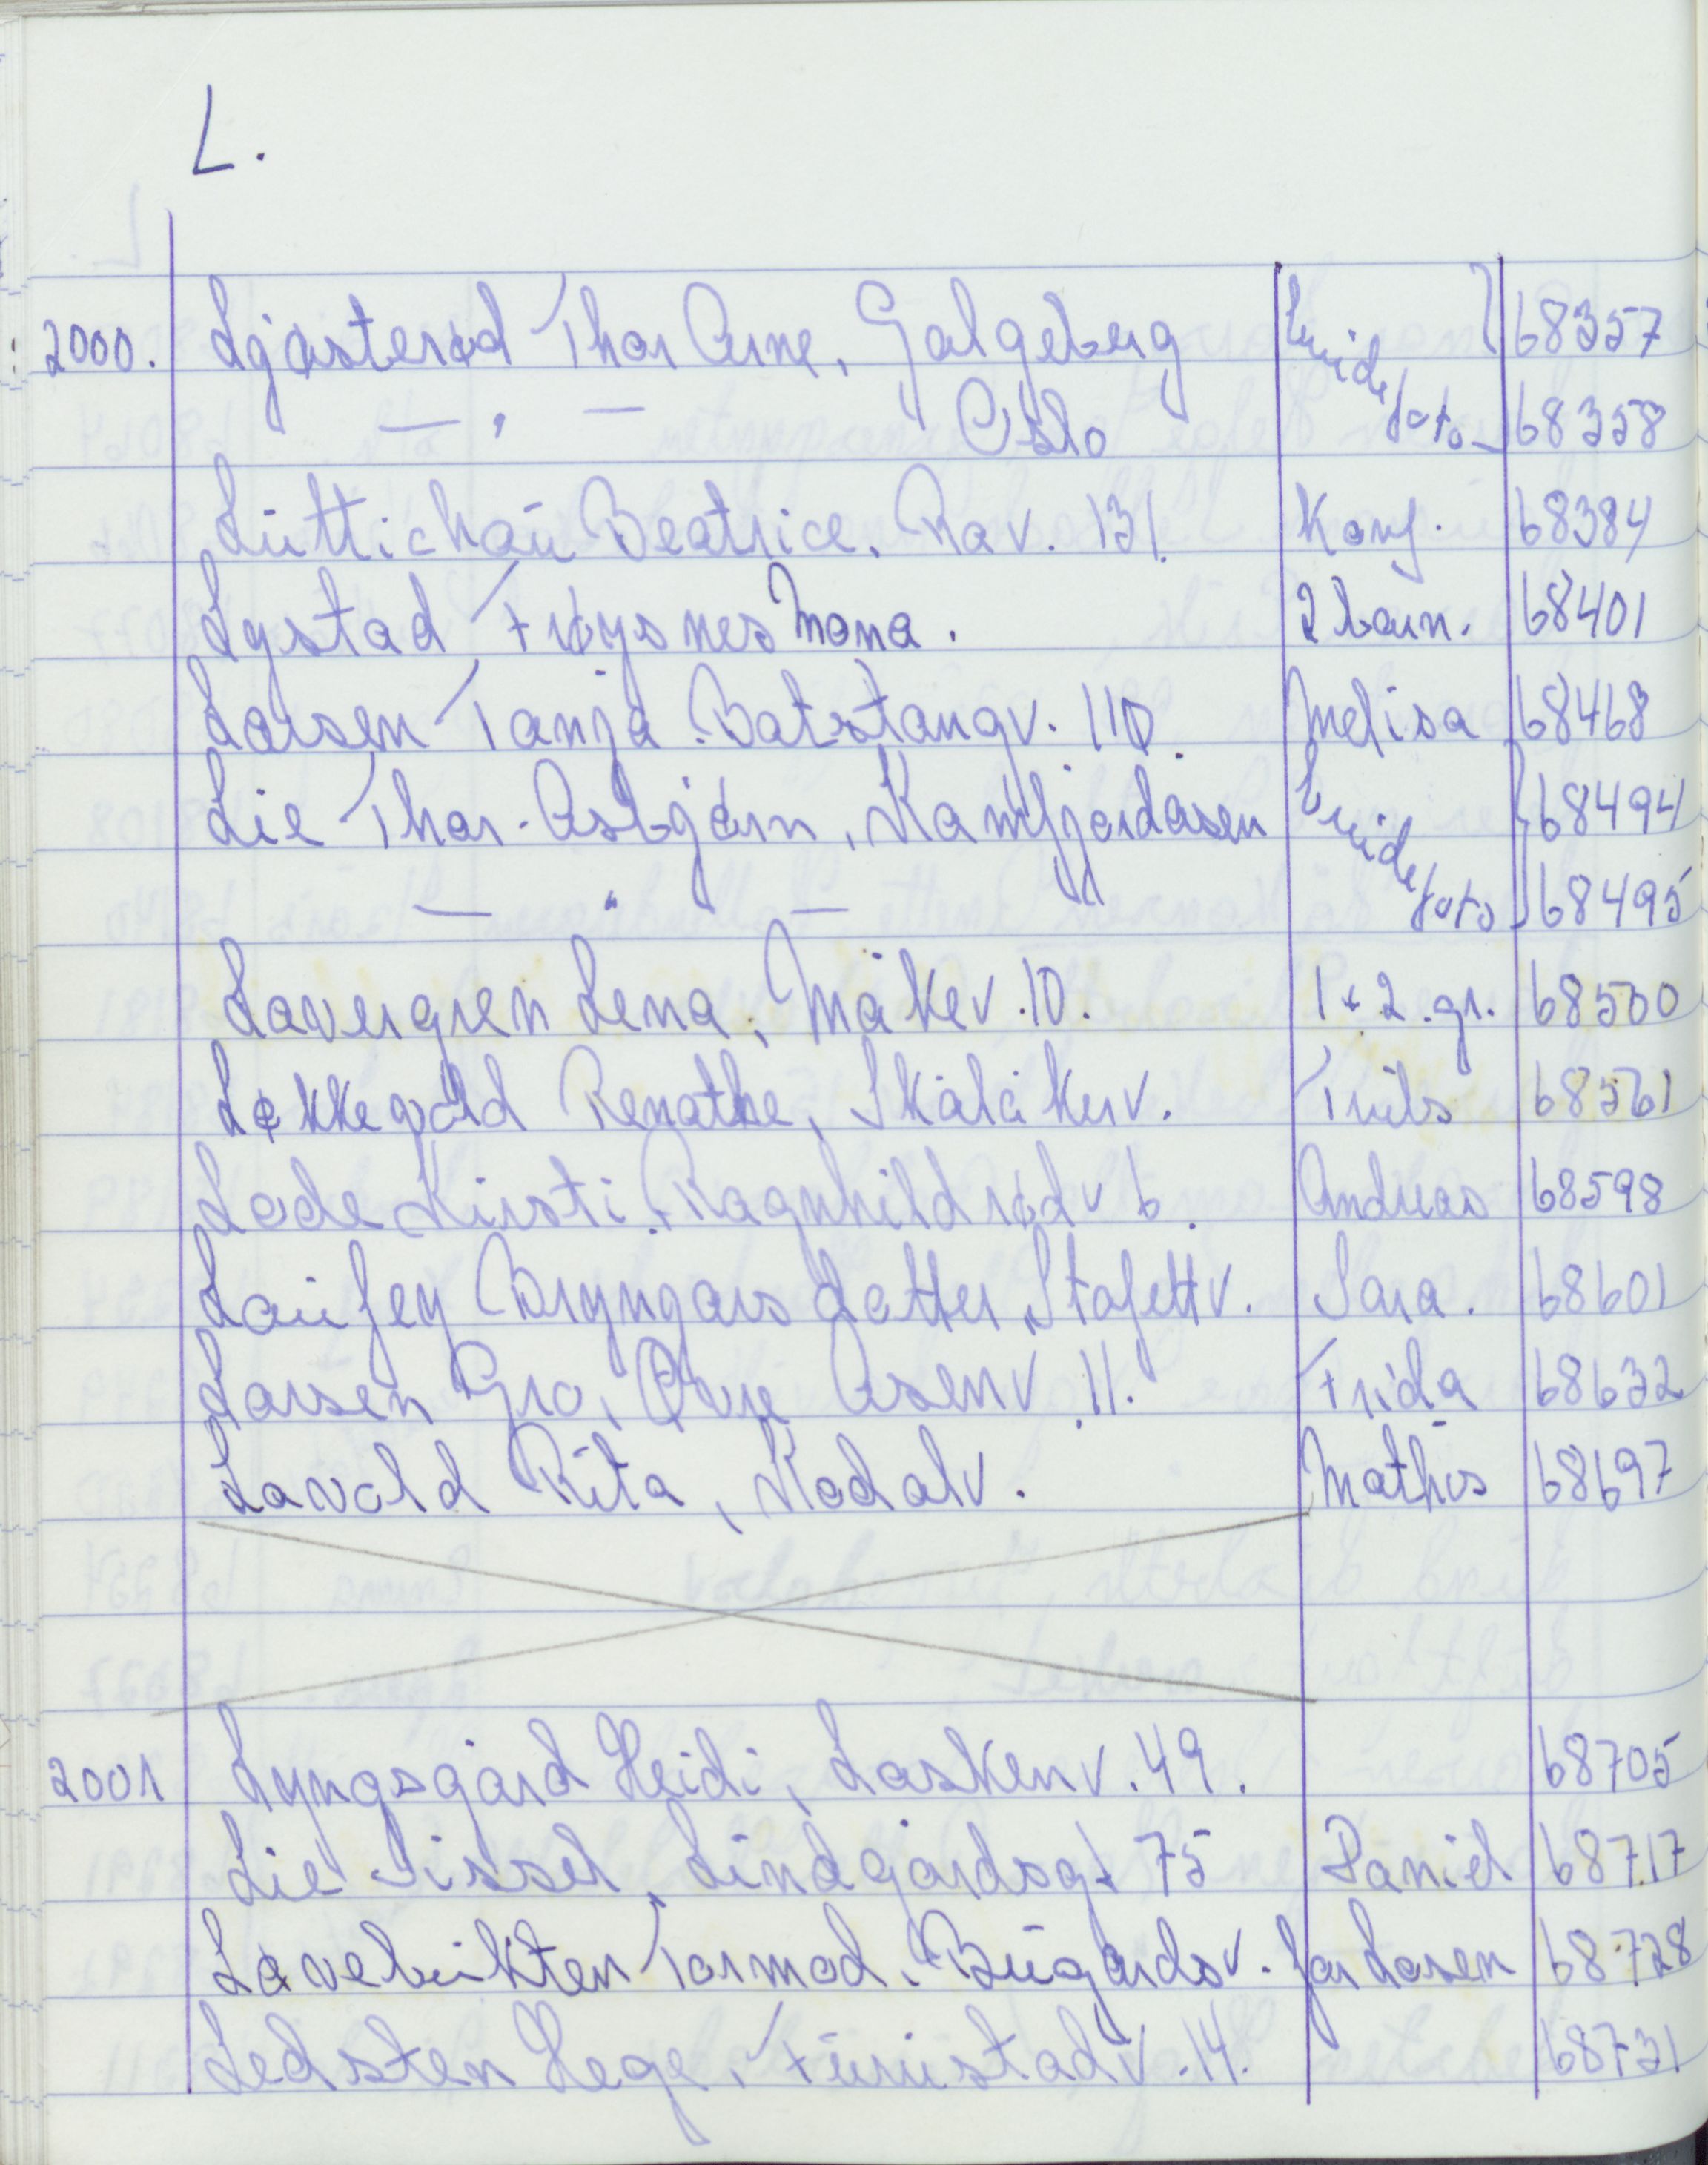 L.
2000. Ljøsterød Thor Arne, Galgeberg Brudefoto 68357
— " — Oslo 68358
Lüttichau Beatrice. Rav. 131. Konf. 68384
Lystad Frøysnes Mona. 2 barn. 68401
Larsen Tanja. Batstangv. 110. Melisa 68468
Lie Thor-Asbjørn, Kamfjordåsen Brudefoto 68494
— " — 68495
Lavergren Lena, Måkev. 10. 1 + 2. gr. 68500
Løkkevold Renathe, Skåläkerv. Truls 68561
Lode Kirsti. Ragnhildrødv 6. Andreas 68598
Laufey Bryngarsdatter, Stafettv. Sara. 68601
Larsen Gro, Øvre Åsenv. 11. Frida 68632
Lavold Rita, Kodalv. Mathis 68697
2001 Lyngsgård Heidi, Laskenv. 49. 68705
Lie Sissel, Lindgårdsgt 75 Daniel 68717
Løvebukten Tormod. Bugårdsv. Jar Lasen 68728
Ledsten Hege, Furustadv. 14. 68731